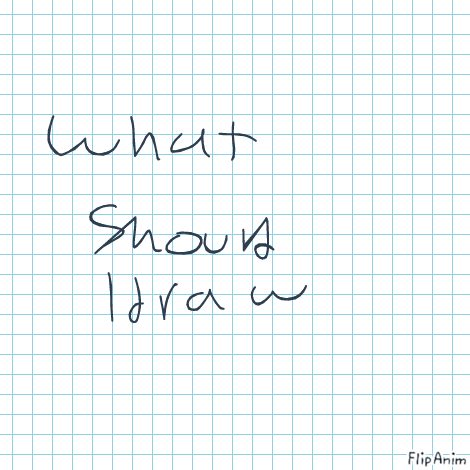 What
Should
I draw
FlipAnim